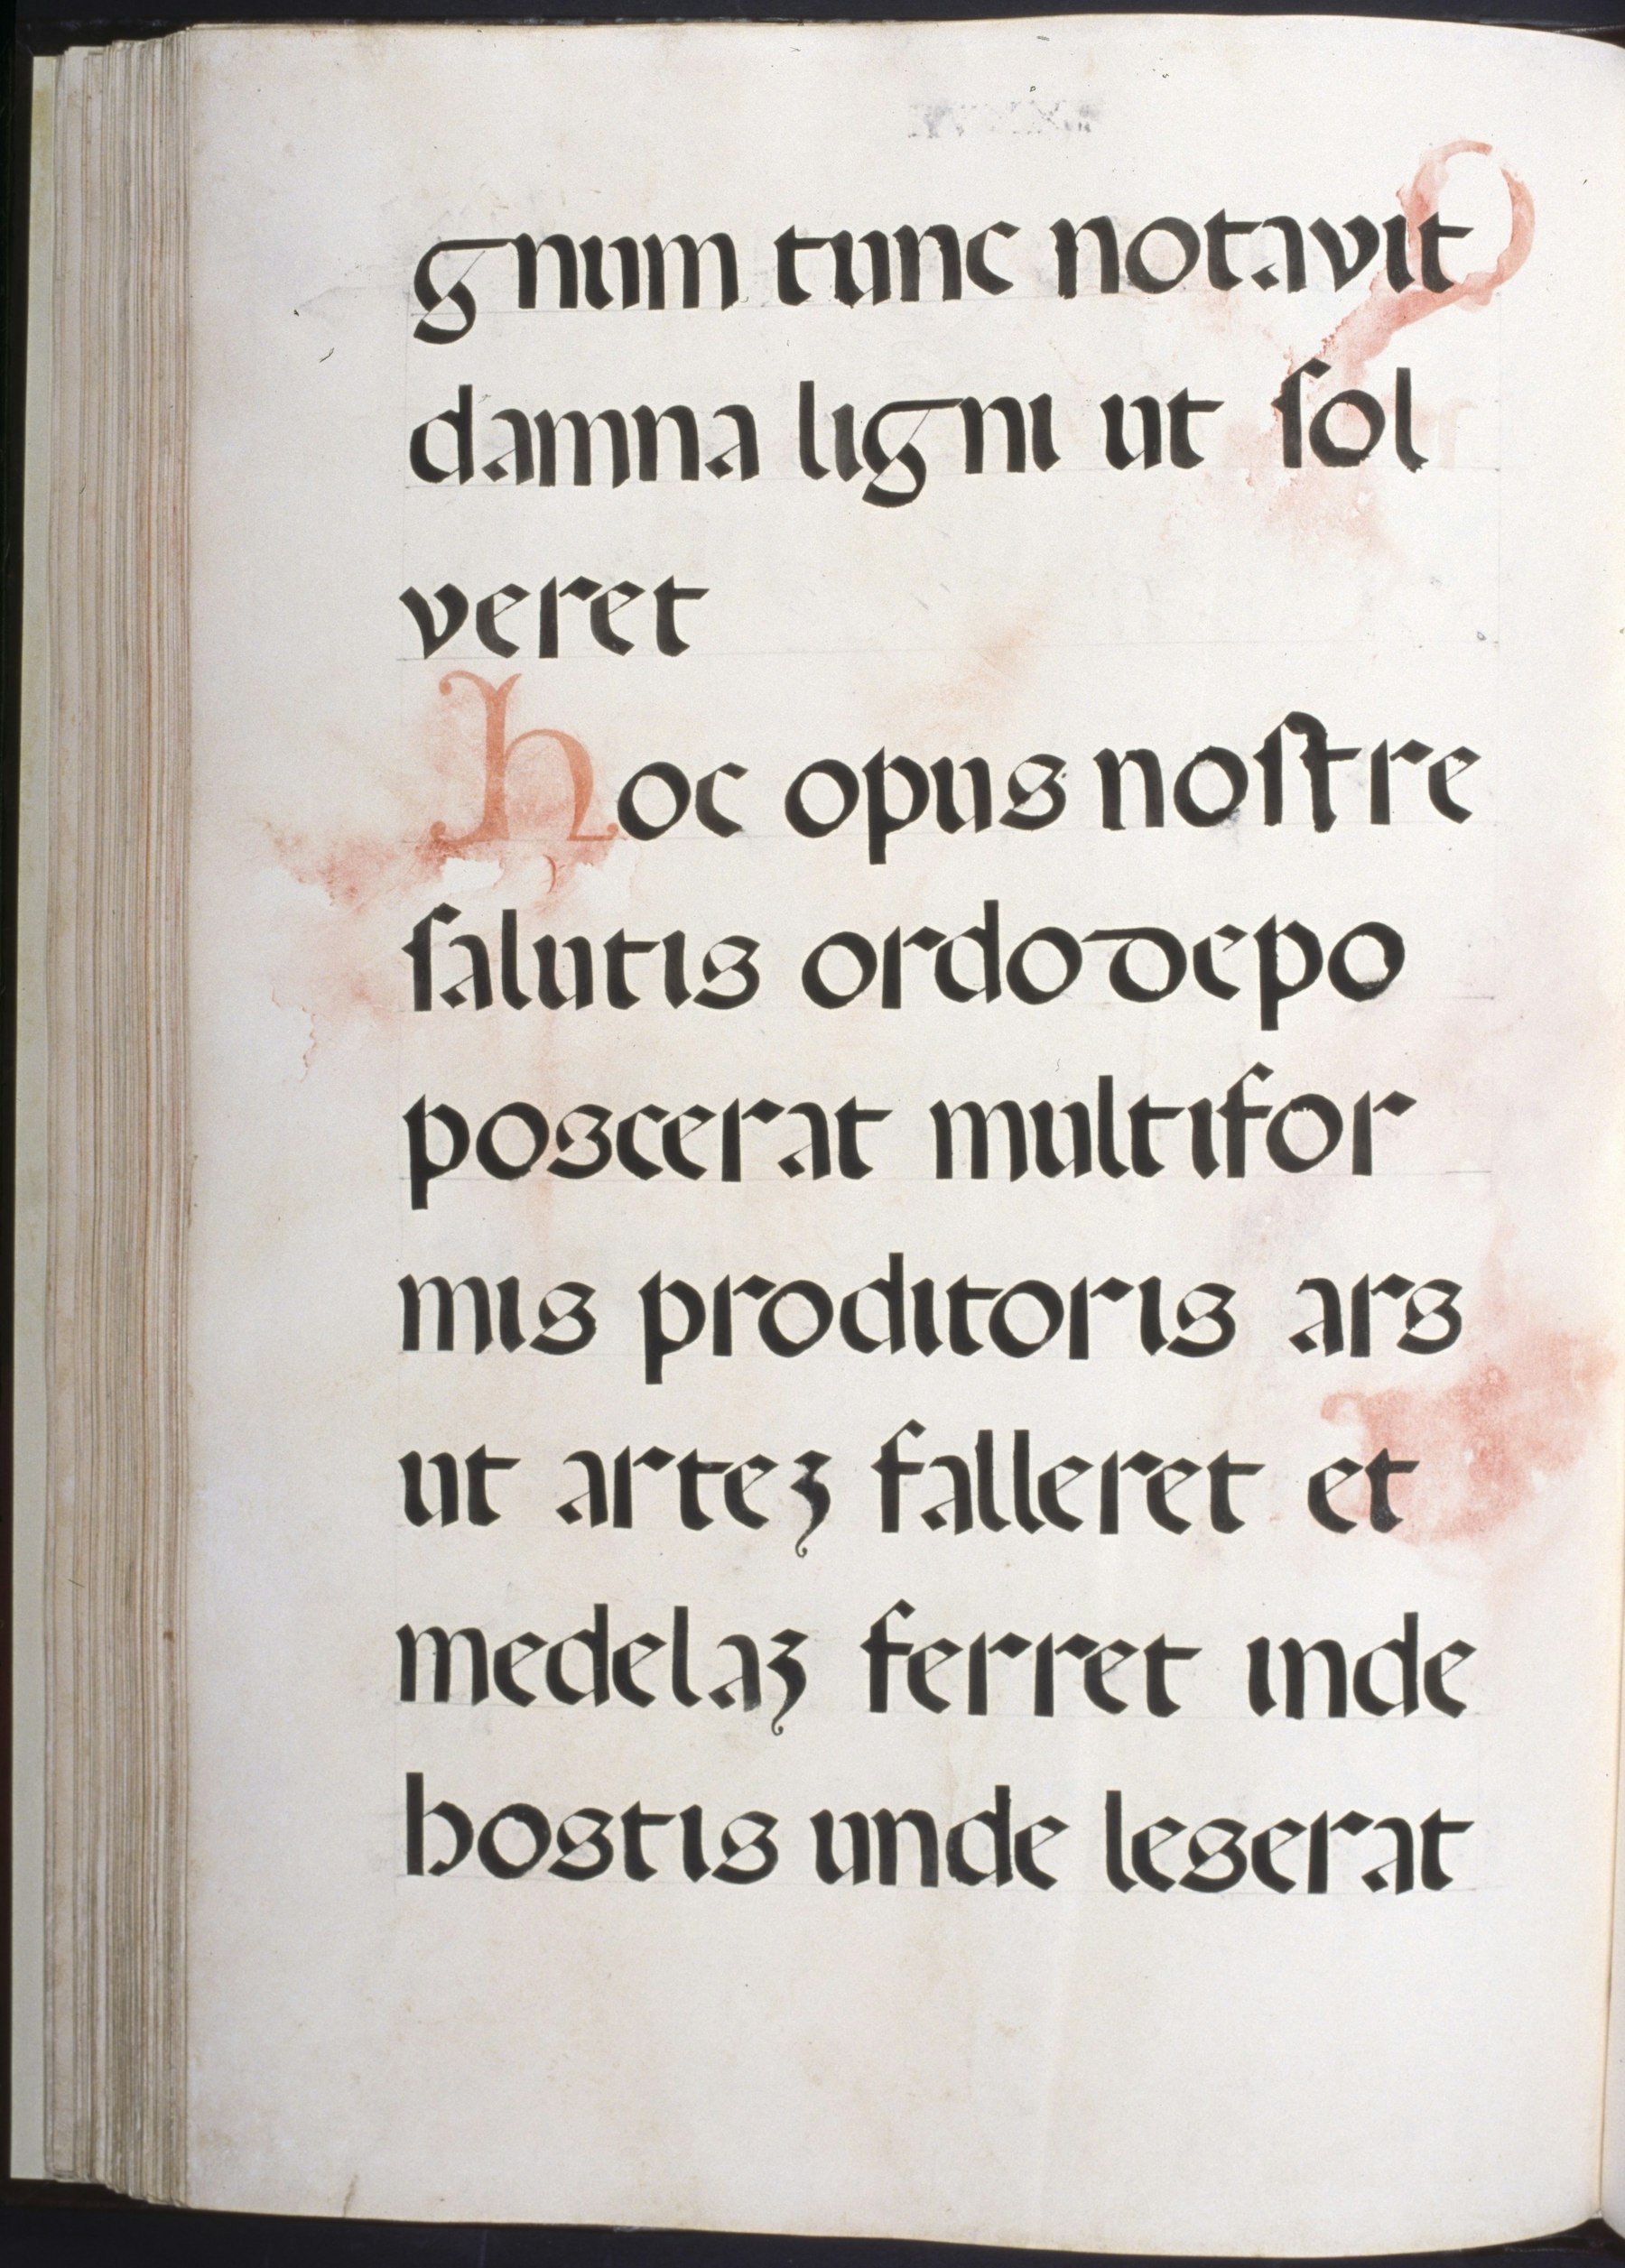 gnum tunc notavit
damna ligni ut ſol
veret
hoc opus noſtre
ſalutis ordo depo
poscerat multifor
mis proditoris ars
ut arteʒ falleret et
medelaʒ ferret inde
hostis unde leserat